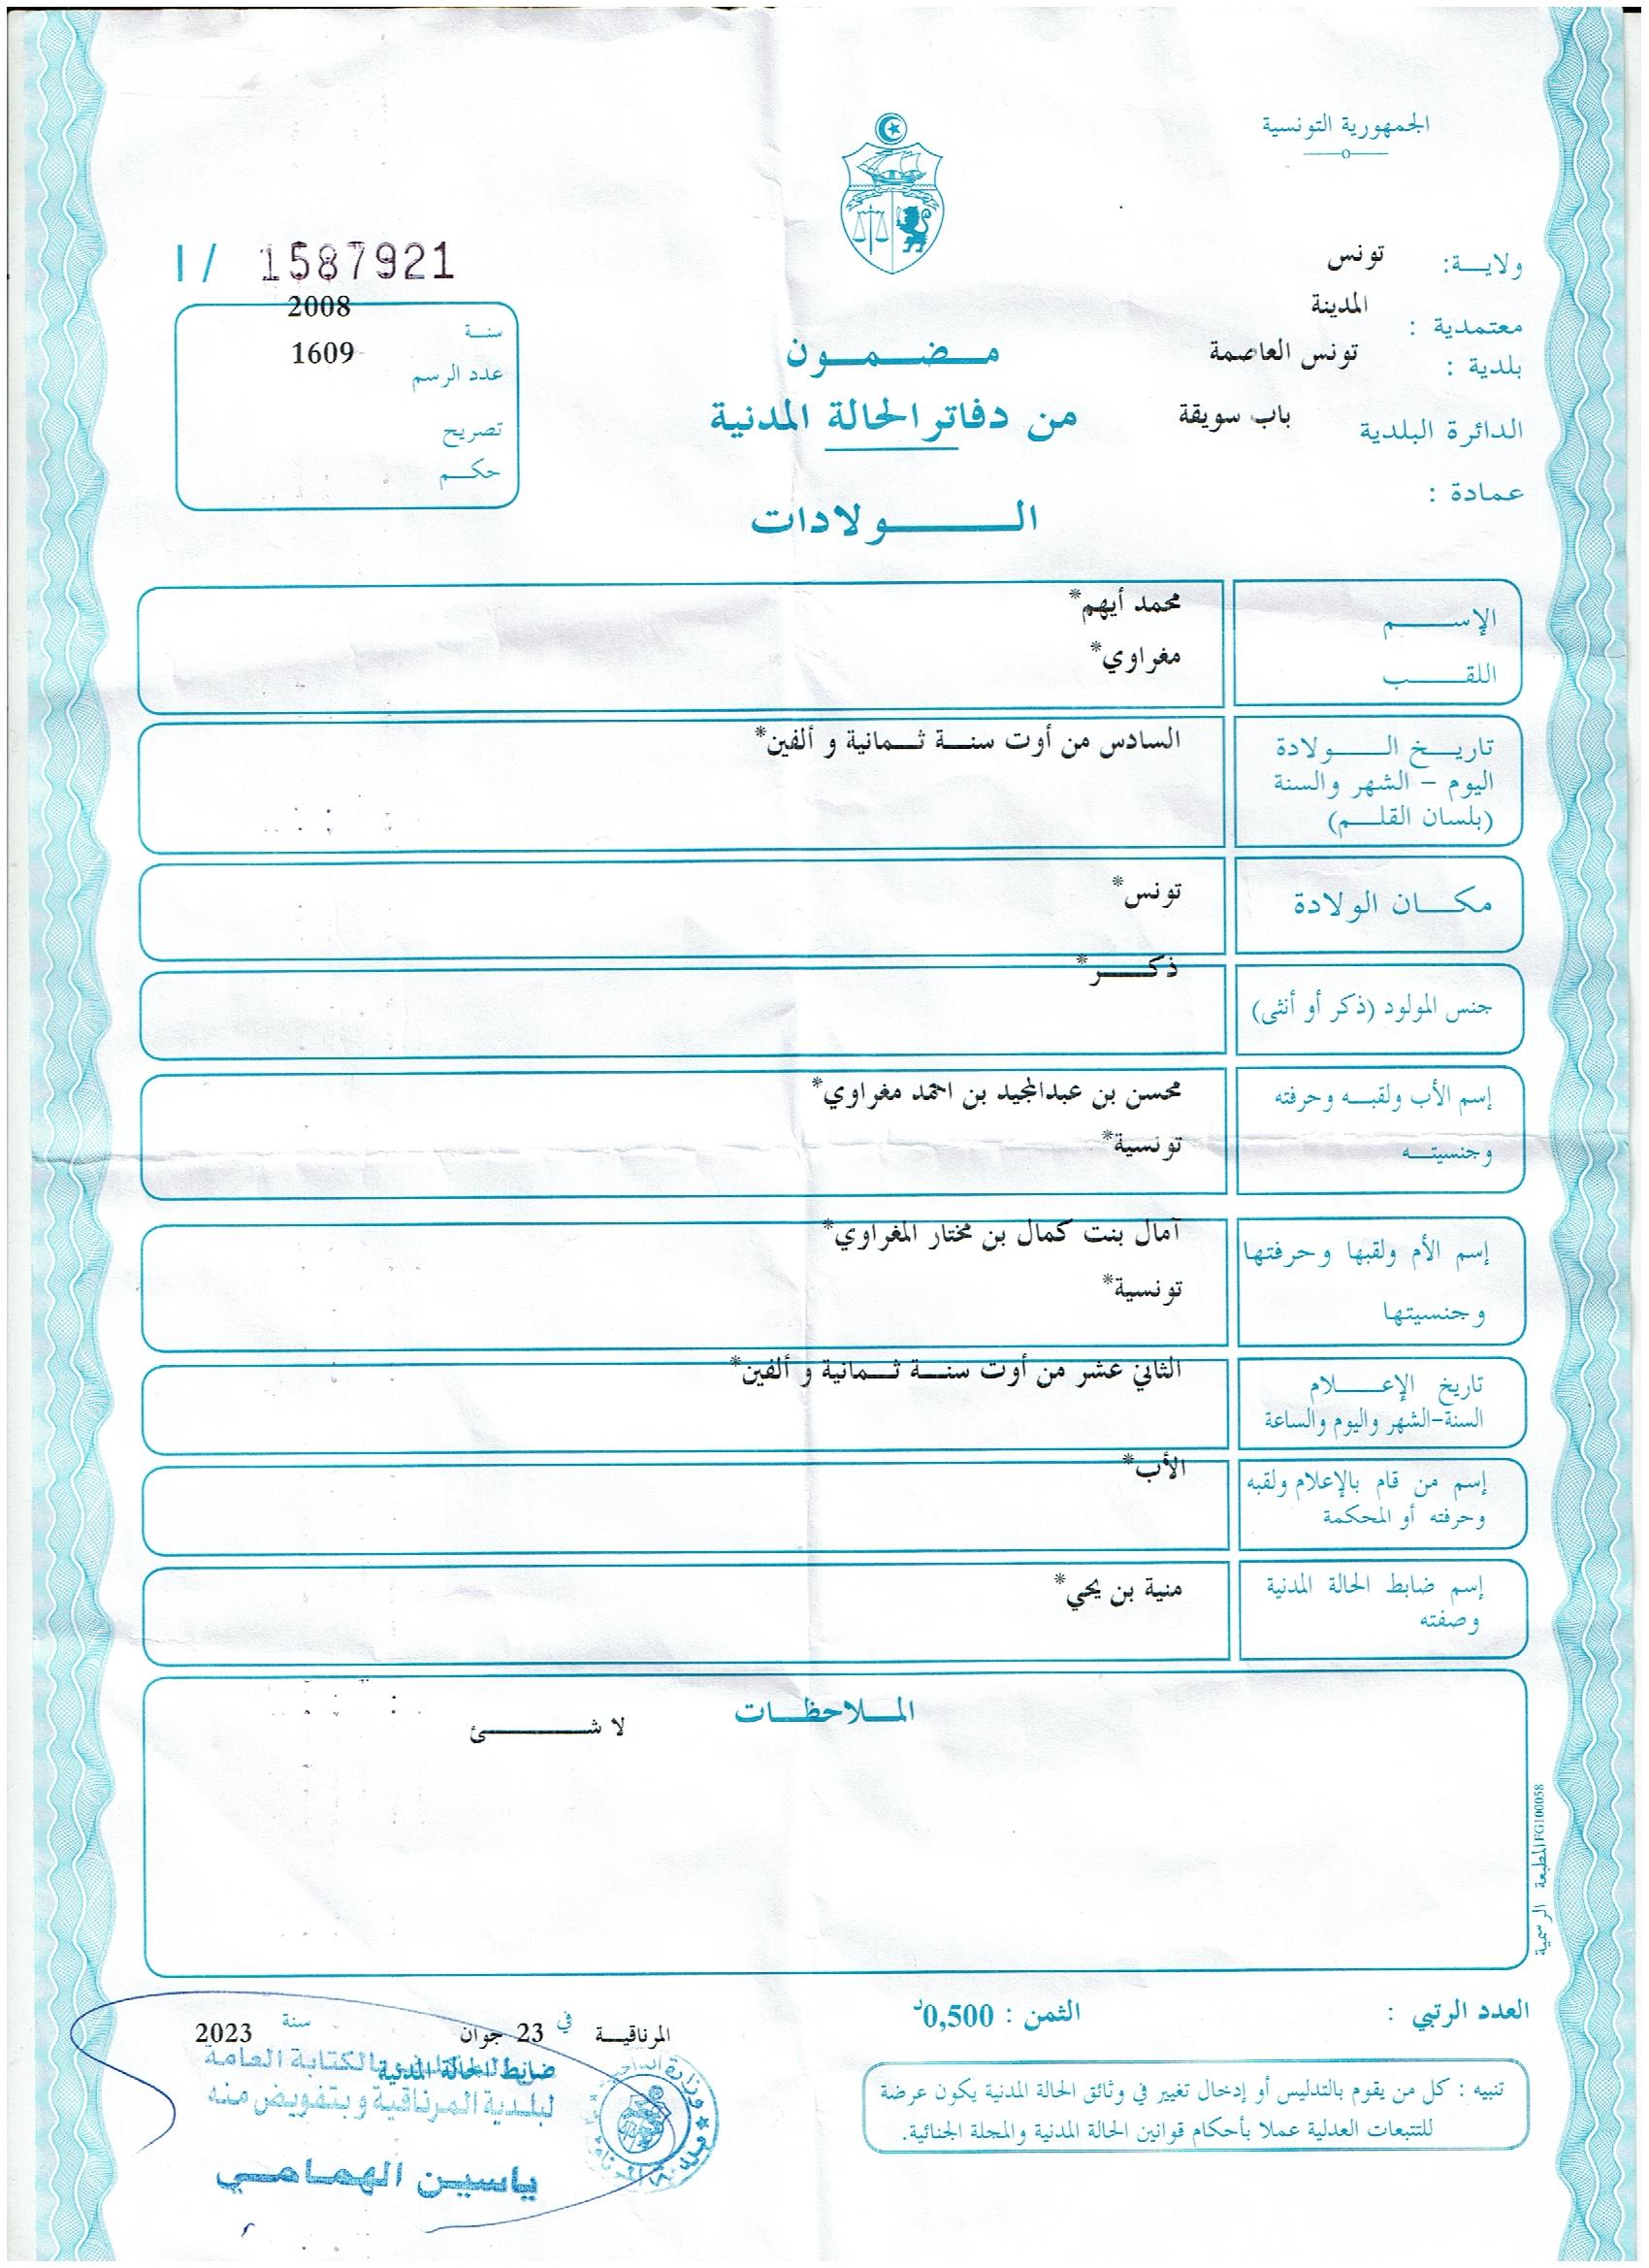 الجمهورية التونسية
ولايـــة: تونس
معتمدية : المدينة
بلدية : تونس العاصمة
الدائرة البلدية باب سويقة
عمادة :
I / 1587921
سنـة 2008
عدد الرسم 1609
تصريح
حكـــم
مـــضـــمـــون
من دفاتر الحالة المدنية
الـــــــولادات
الإســـــم محمد أيهم*
اللقـــــب مغراوي*
تاريـــخ الـــــولادة السادس من أوت سنـــة ثـــمانية و ألفين*
اليوم - الشهر والسنة
(بلسان القلـــم)
مكـــان الولادة تونس*
جنس المولود (ذكر أو أنثى) ذكـــــر*
إسم الأب ولقبـــه وحرفته محسن بن عبدالمجيد بن احمد مغراوي*
وجنسيتـــه تونسية*
إسم الأم ولقبها وحرفتها آمال بنت كمال بن مختار المغراوي*
وجنسيتها تونسية*
تاريخ الإعـــــلام الثاني عشر من أوت سنـــة ثـــمانية و ألفين*
السنة-الشهر واليوم والساعة
إسم من قام بالإعلام ولقبه الأب*
وحرفته أو المحكمة
إسم ضابط الحالة المدنية منية بن يحي*
وصفته
الملاحظـــات
لا شـــــــئ
المطبعة الرسمية FG100058
العدد الرتبي :
الثمن : 0,500د
تنبيه : كل من يقوم بالتدليس أو إدخال تغيير في وثائق الحالة المدنية يكون عرضة
للتتبعات العدلية عملا بأحكام قوانين الحالة المدنية والمجلة الجنائية.
المرناقيـــة في 23 جوان سنة 2023
ضابط الحالة المدنية
بالكتابة العامة
لبلدية المرناقية وبتفويض منه
ياسين الهمامي